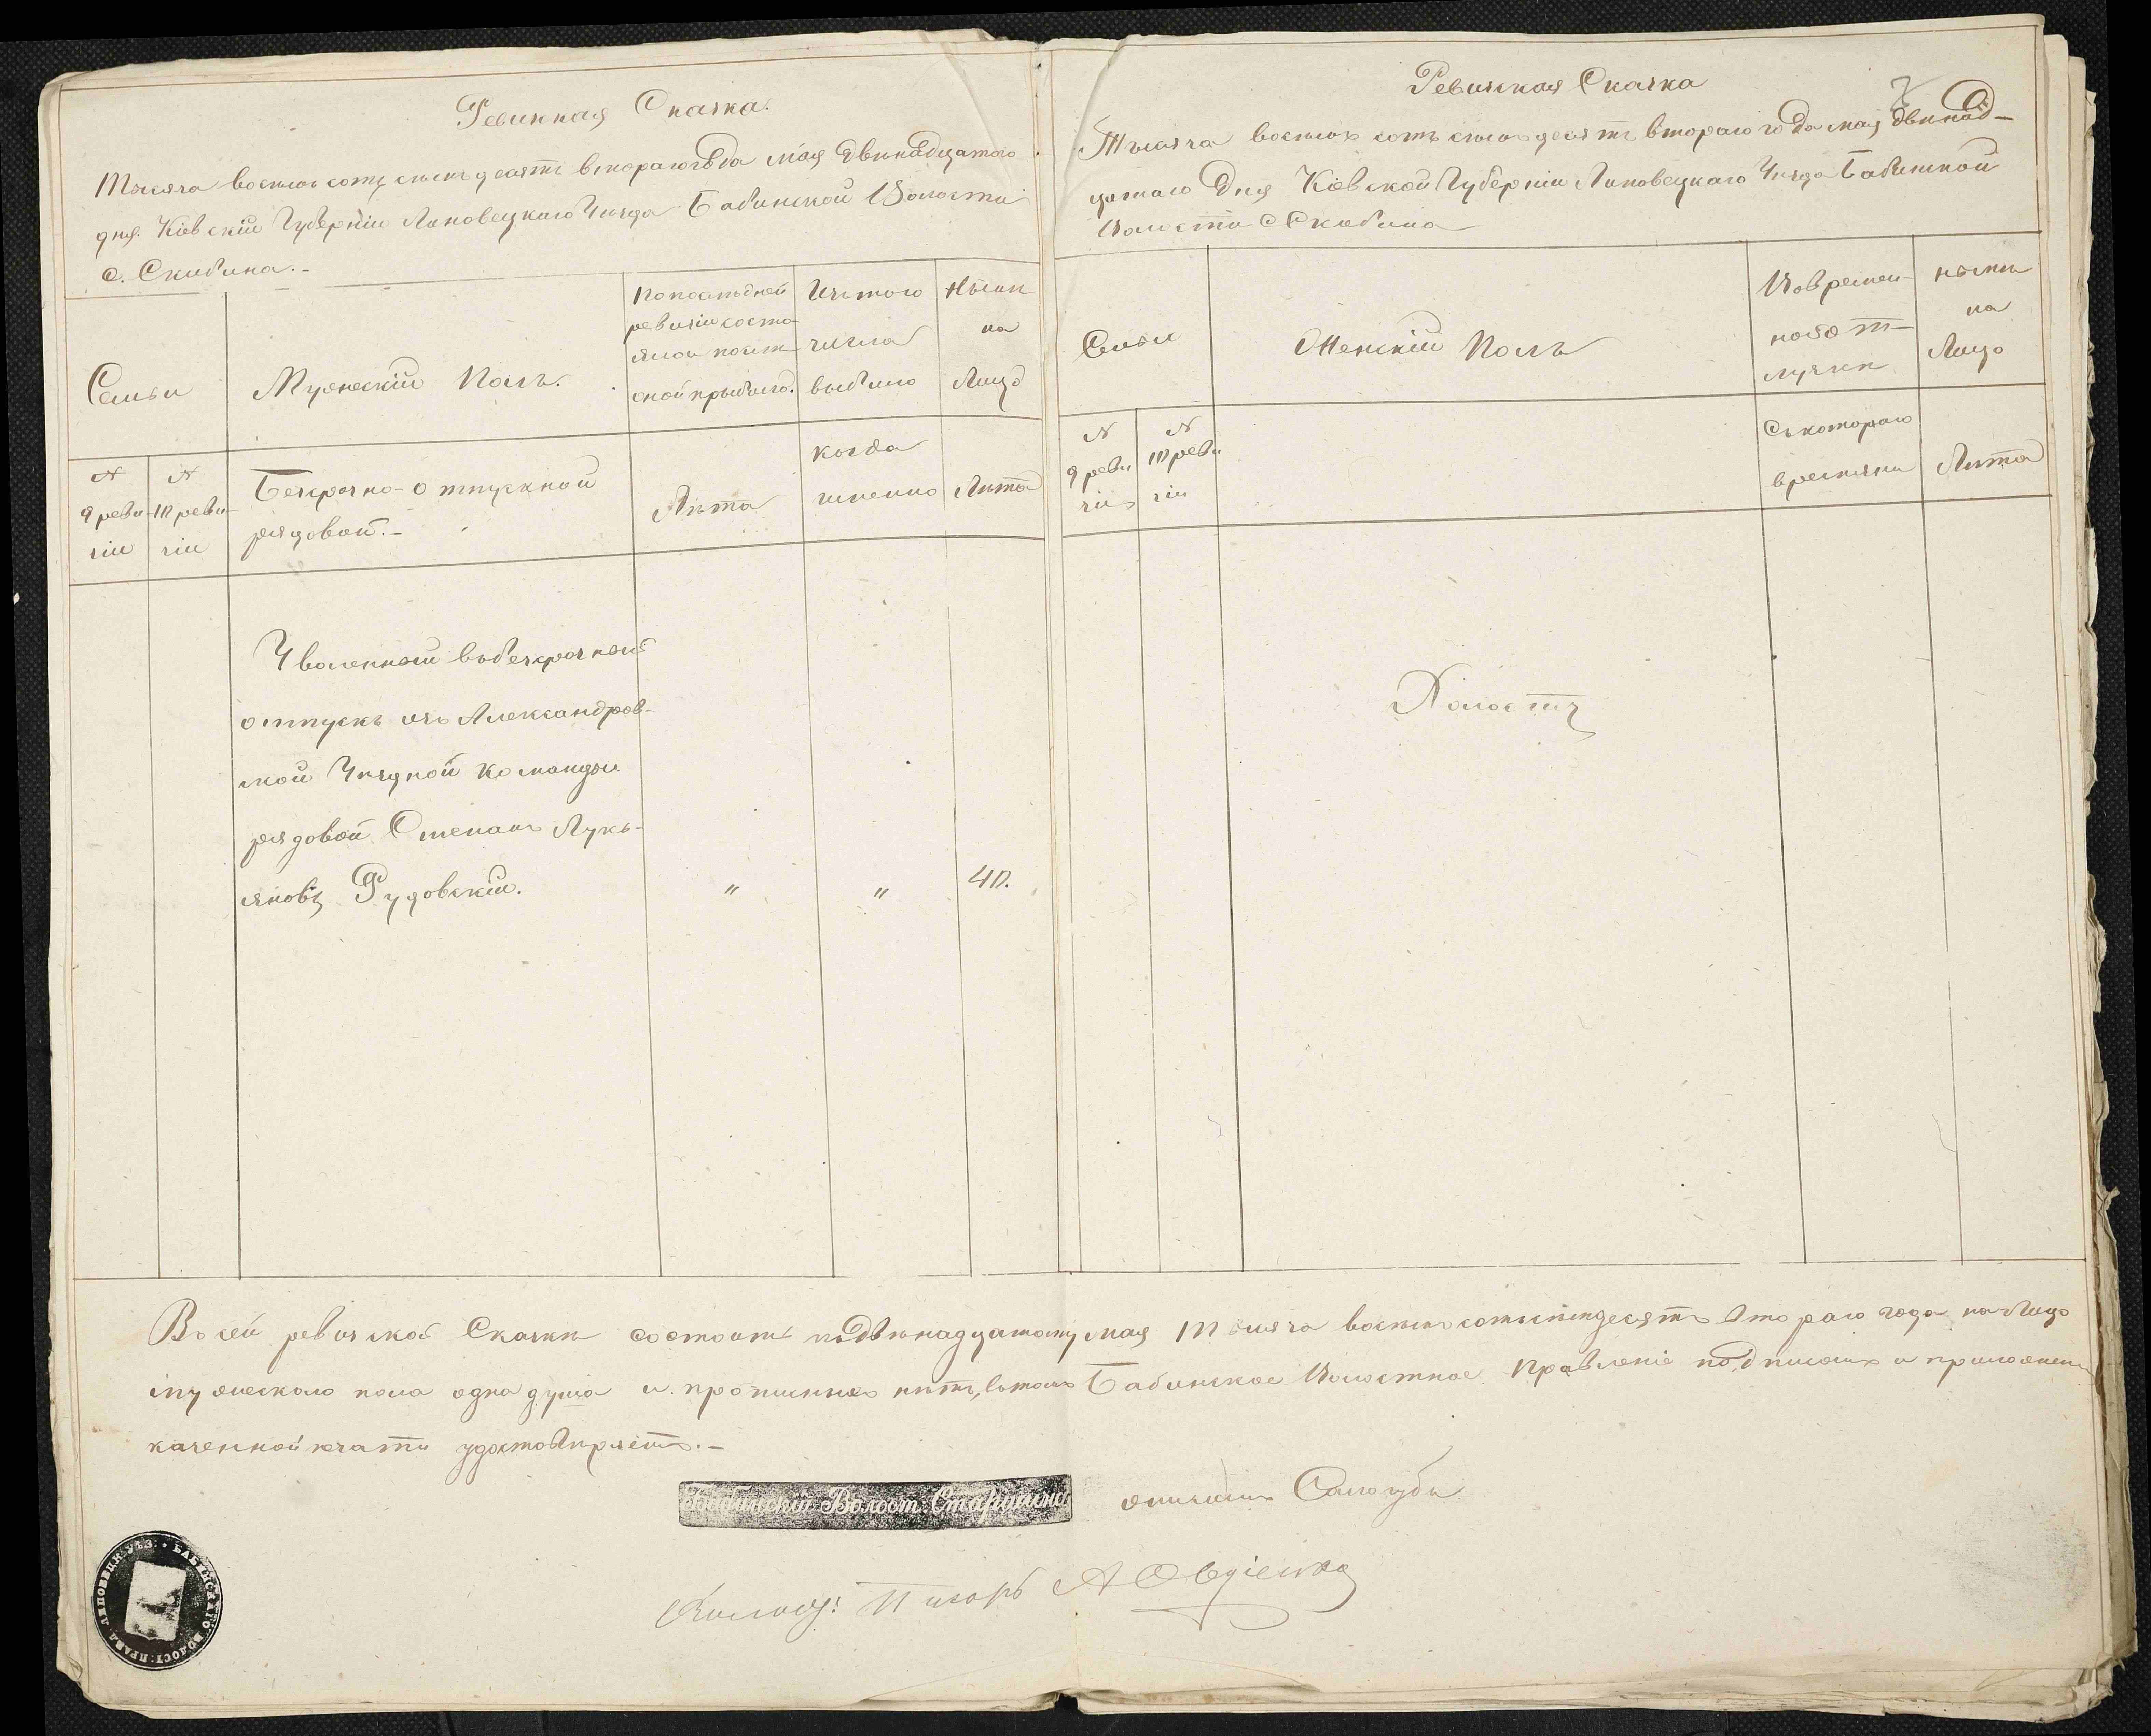 Ревизкая Сказка.
Тысяча восемьсотъ семьдесятъ втораго года мая двенадцатого
дня. Кіевскій Губерніи Липовецкаго Уѣзда Бабинской Волости
с. Скибина.-
Семьи
Мужескій Полъ.
По последней
ревизіи состо-
яло и посля
оной прыбыло.
Изъ того
числа
выбыло
Нынѣ
на
Лицо
N
9 реви-
зіи
N
10 реви-
зіи
Безсрочно-отпускной
рядовой.-
Лѣта
когда
именно
Лѣта
Уволенный въ безсрочный
отпускъ изъ Александров-
ской Уѣздной Команды
рядовой Степанъ Лукь-
яновъ Рудовскій.
"
"
40.
Ревизская Сказка
Тысяча восемьсотъ семьдесятъ втораго года мая двенад-
цатаго Дня Кіевской Губерніи Липовецкаго Уѣзда Бабинской
Волости с Скибина
Семьи
Женскій Полъ
Во времен-
ной от-
лучкѣ
нынѣ
на
Лицо
N
9 реви
зіи
N
10 реви
зіи
Съ котораго
времяни
Лѣта
Холостъ
Въ сей ревизской Сказкѣ состоитъ къ двѣнадцатому мая Тысяча восемьсотъ семдесятъ втораго года на Лицо
мужескаго пола одна душа и прописныхъ нѣтъ, въ томъ Бабинское Волостное Правленіе подписомъ и приложеніем
казенной печати удостовѣряетъ.-
Бабинскій Волост. Старшина
Салогубъ
Писарь А Овдіенко
БАБИНСКАГО ВОЛОСТ: ПРАВЛ. ЛИПОВЕЦК: УѢЗ: